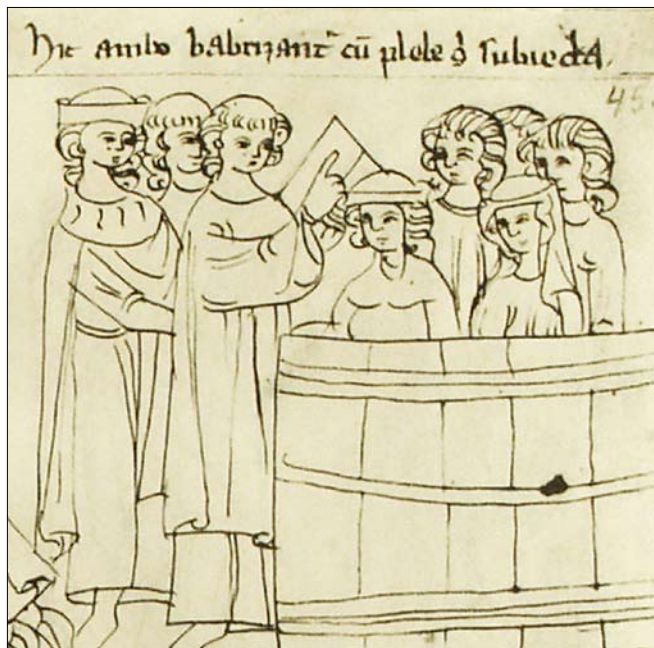 hic ambo babtizant' cū plebe s̄ subiecta.
45